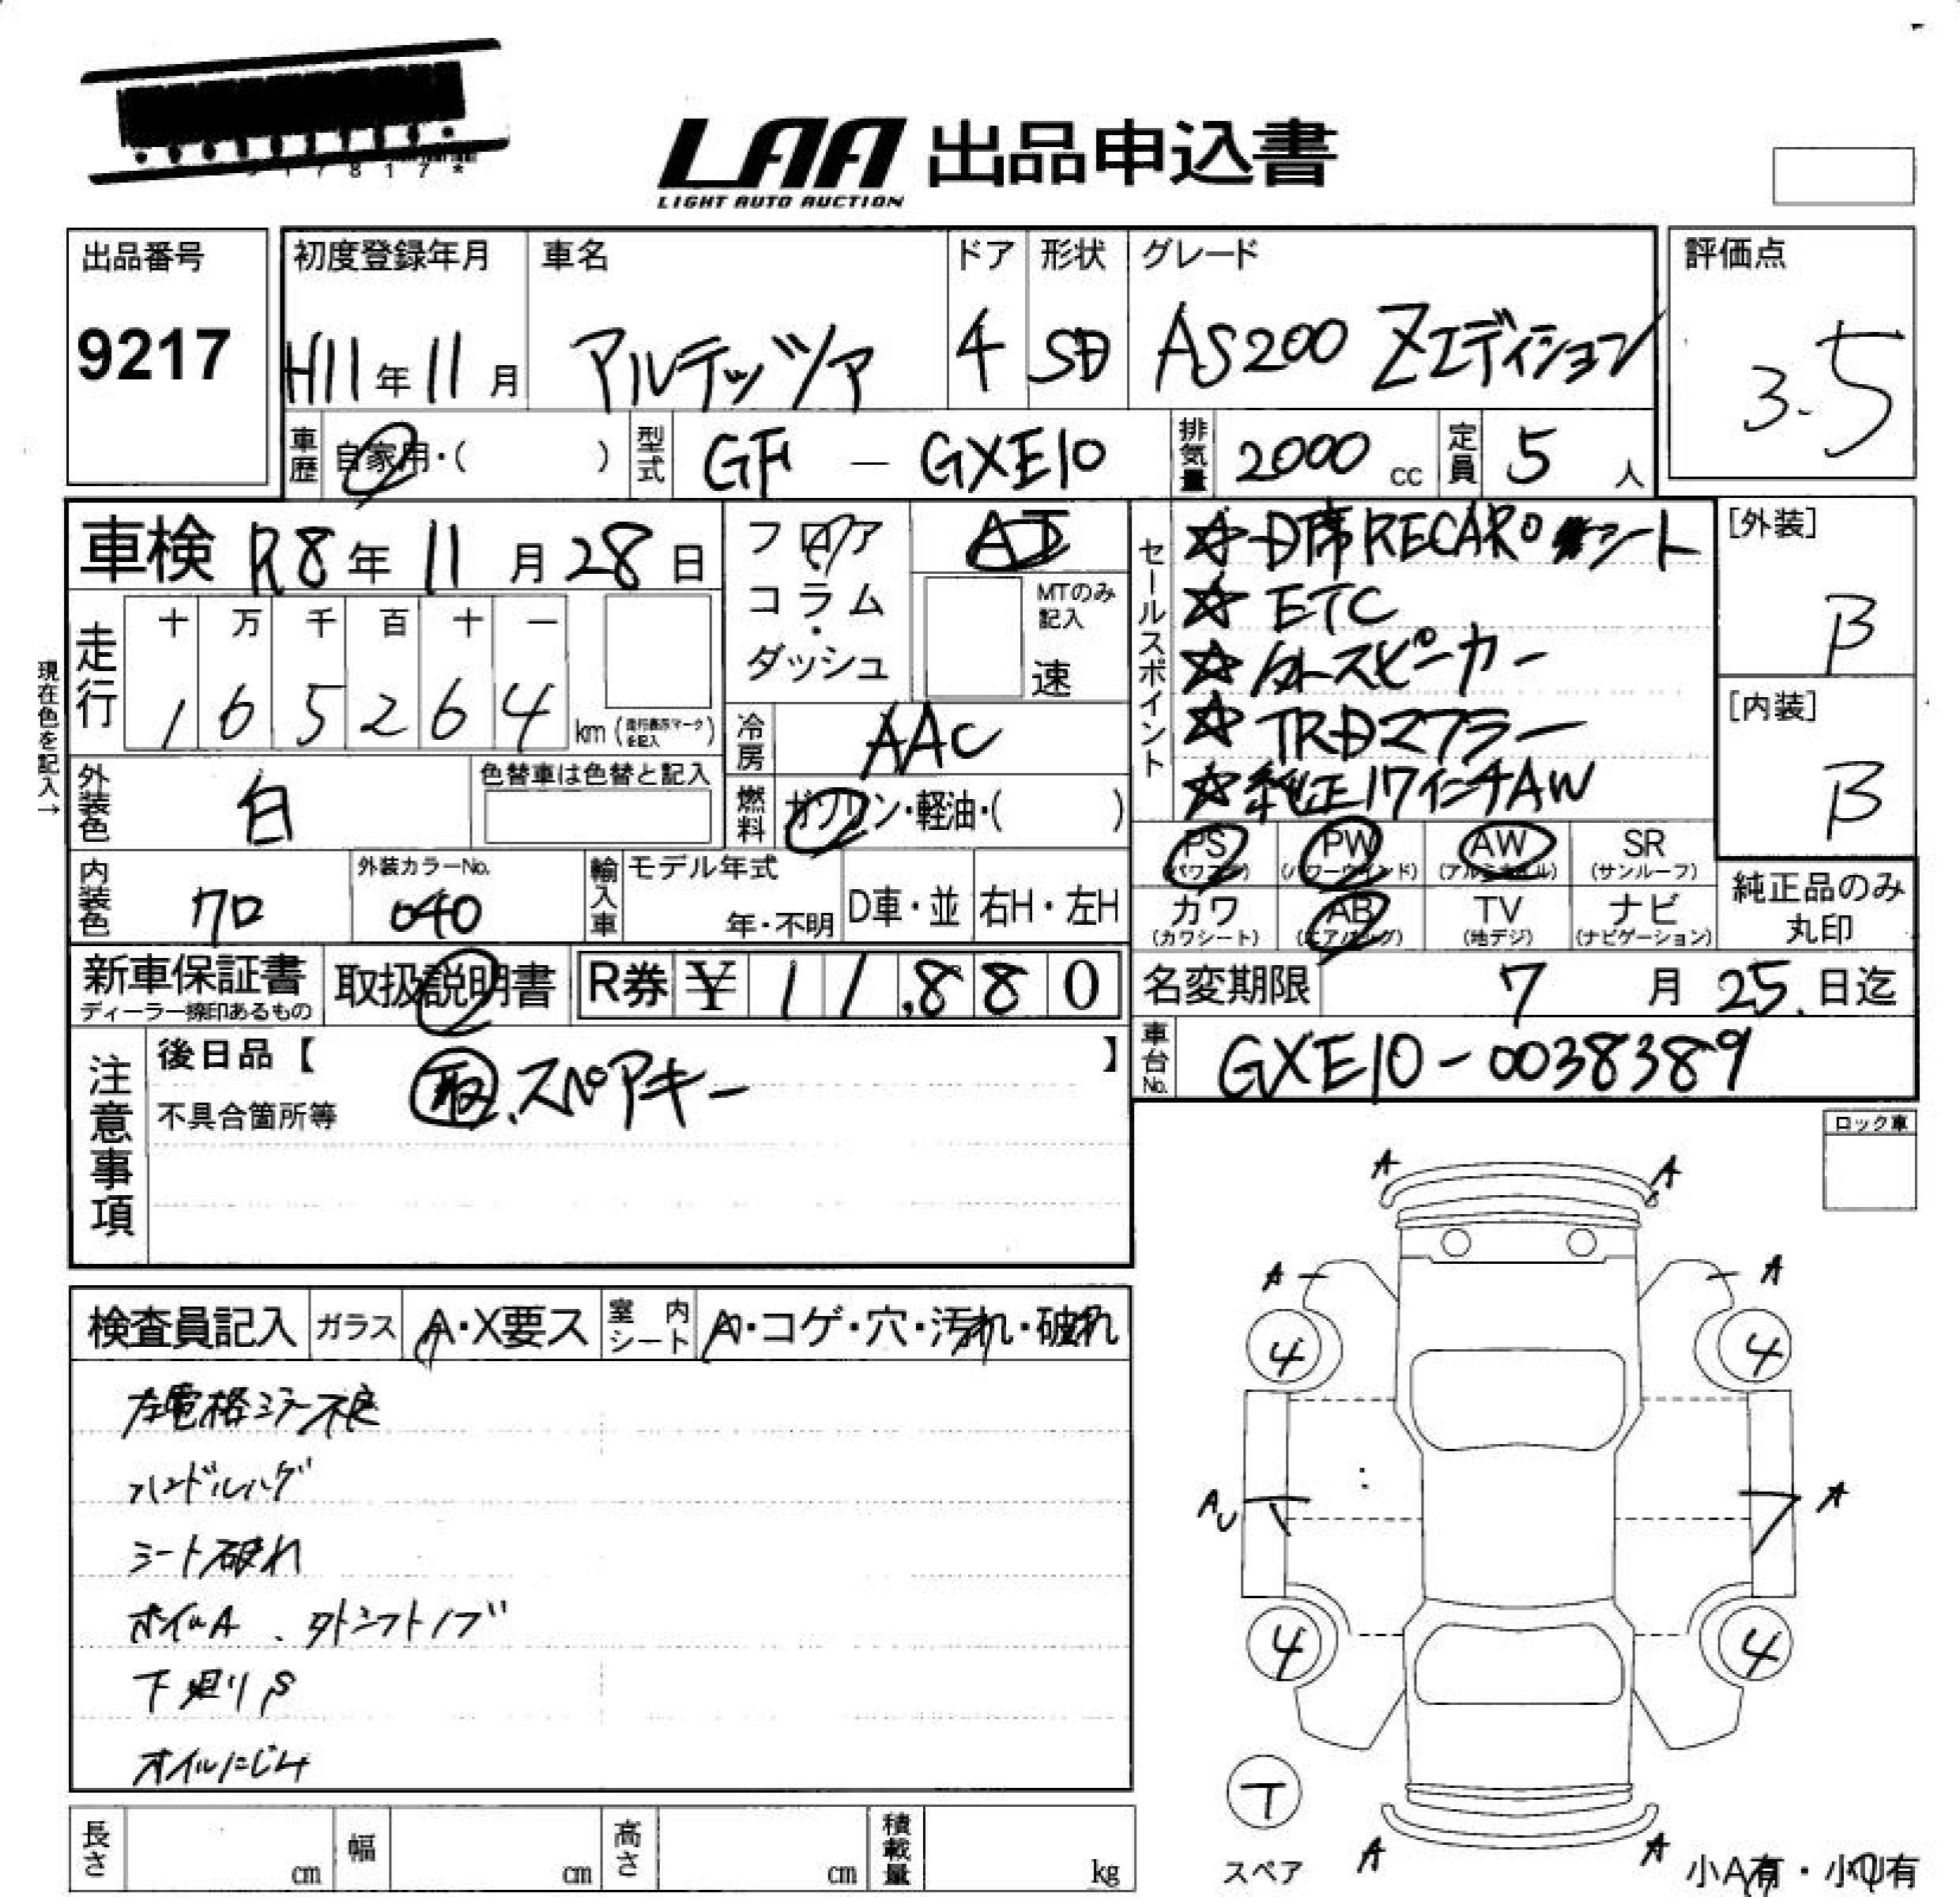 7 8 1 7 *
LAA 出品申込書
LIGHT AUTO AUCTION
出品番号
9217
初度登録年月
H11年11月
車名
アルテッツァ
ドア
4
形状
SD
グレード
AS200 Zエディション
評価点
3.5
車歴
自家用・( )
型式
GF - GXE10
排気量
2000 cc
定員
5 人
車検 R8年11月28日
フロア
コラム・
ダッシュ
AT
MTのみ
記入
速
セールスポイント
☆D席RECAROシート
☆ETC
☆外スピーカー
☆TRDマフラー
☆純正17インチAW
[外装]
B
[内装]
B
現在色を記入→
走行
十 万 千 百 十 一
1 6 5 2 6 4
km (走行表示マークを記入)
冷房
AAC
燃料
ガソリン・軽油・( )
外装色
白
色替車は色替と記入
内装色
クロ
外装カラーNo.
040
輸入車
モデル年式
年・不明
D車・並
右H・左H
PS
(パワステ)
PW
(パワーウインド)
AW
(アルミホイル)
SR
(サンルーフ)
カワ
(カワシート)
AB
(エアバッグ)
TV
(地デジ)
ナビ
(ナビゲーション)
純正品のみ
丸印
新車保証書
ディーラー捺印あるもの
取扱説明書
R券 ¥ 11,880
名変期限 7月25.日迄
車台No.
GXE10-0038389
注意事項
後日品【 】
取、スペアキー
不具合箇所等
ロック車
検査員記入
ガラス
A・X要ス
室内
シート
A・コゲ・穴・汚れ・破れ
左電格ミラー不良
ハンドルハゲ
シート破れ
オイルA、外シフトノブ
下廻りS
オイルにじみ
A A
A A
4 4
AU A
4 4
T
スペア
A A
小A有・小U有
長さ cm
幅 cm
高さ cm
積載量 kg